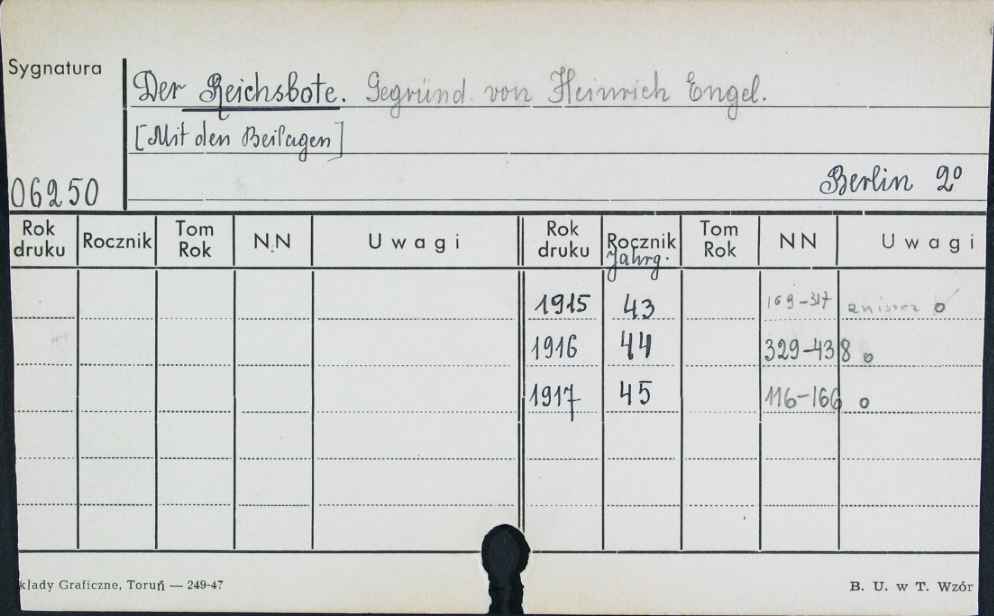 Sygnatura
Der Reichsbote. Gegründ. von Heinrich Engel.
[Mit den Beilagen]
06250
Berlin 2º
Rok druku Rocznik Tom Rok NN Uwagi Rok druku Rocznik Tom Rok NN Uwagi
Jahrg.
1915 43 169-317 o
1916 44 329-438 o
1917 45 116-166 o
kłady Graficzne, Toruń — 249-47
B. U. w T. Wzór